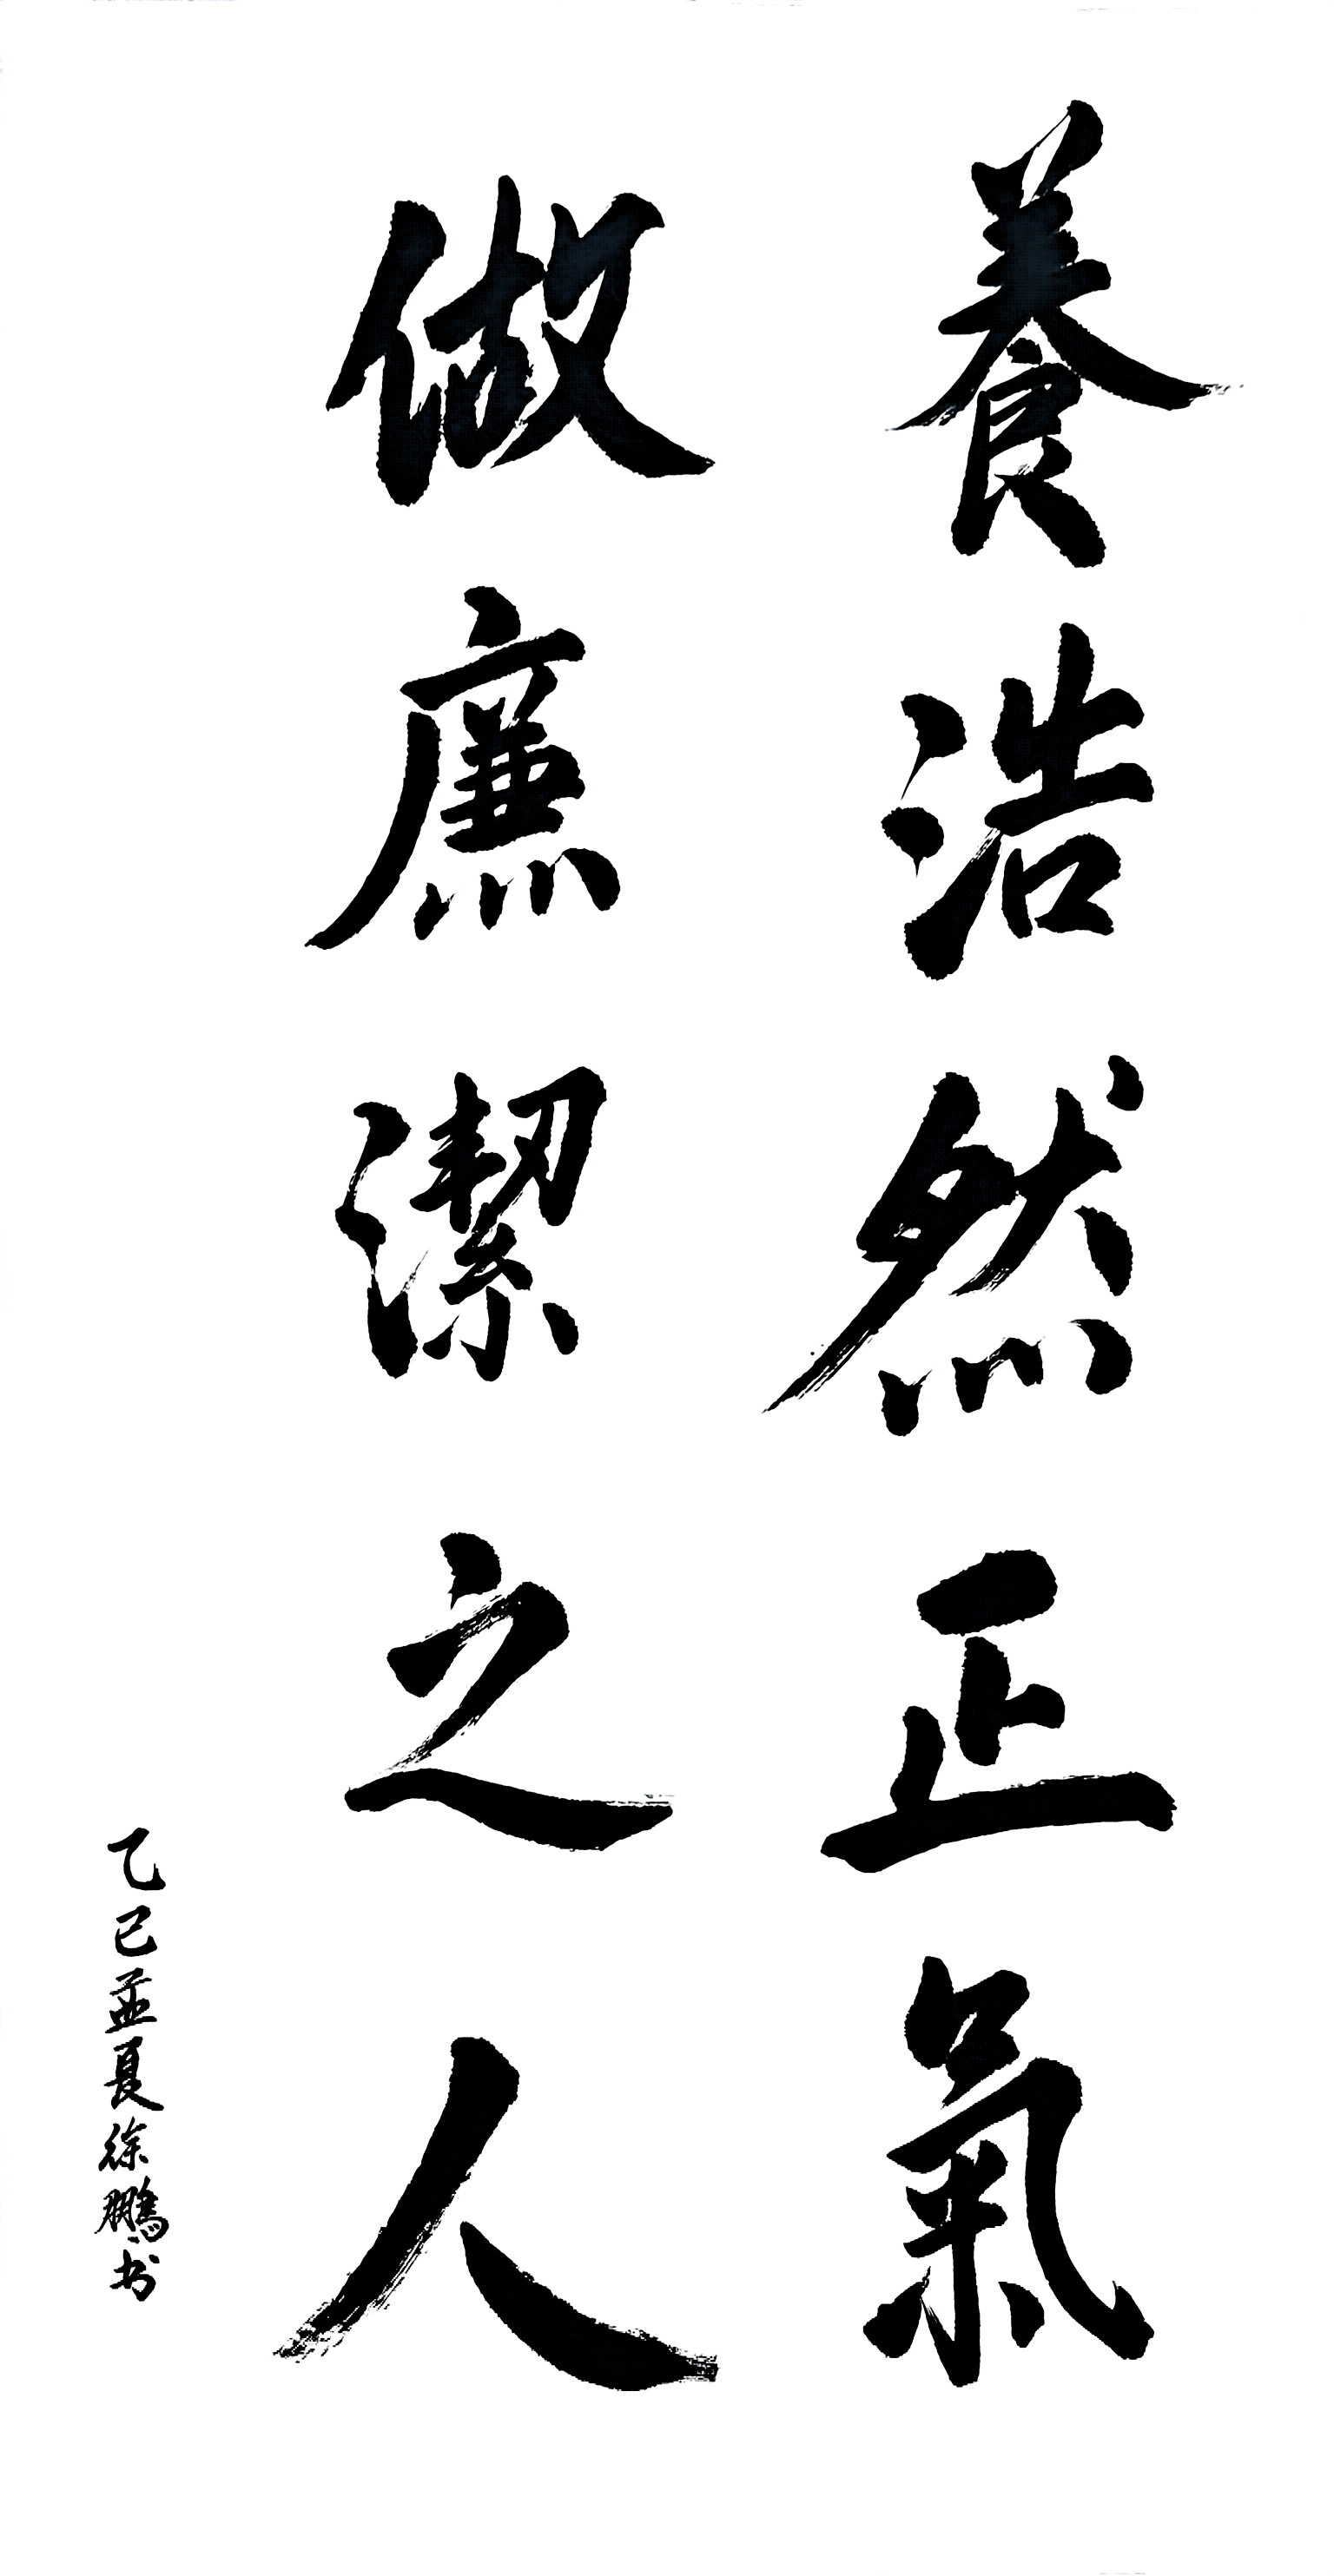 養浩然正氣
做廉潔之人
乙巳孟夏徐鵬书